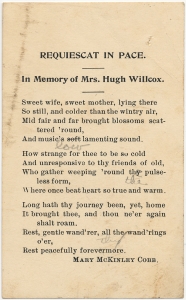 REQUIESCAT IN PACE.
In Memory of Mrs. Hugh Willcox.
Sweet wife, sweet mother, lying there
So still, and colder than the wintry air,
Mid fair and far brought blossoms scat-
tered 'round,
And music's soft lamenting sound.
low
How strange for thee to be so cold
And unresponsive to thy friends of old,
Who gather weeping 'round thy pulse-
less form,
Where once beat heart so true and warm.
Long hath thy journey been, yet, home
It brought thee, and thou ne'er again
shalt roam.
Rest, gentle wand'rer, all the wand'rings
o'er,
Rest peacefully forevermore.
MARY MCKINLEY COBB.